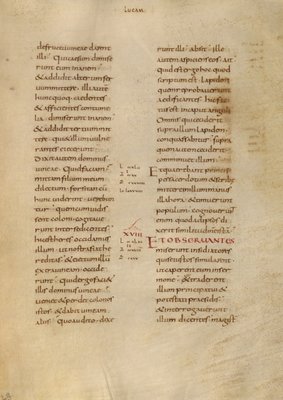 Lucam
defructu uineae darent
illi Qui caesum dimise
runt eum inanem
&addidit alterum ser
uum mittere illi aute
hunc quoq caedentes
&afficientes contume
lia dimiserunt inanem
&addidit tertium mit
tere qui&illum uulne
rantes eiecerunt
Dixit autem dominus
uineae Quid faciam
mittam filium meum
dilectum forsitan cu
hunc uiderint uerebun
tur quem cum uidis
sent coloni cogitaue
runt inter se dicentes
hic est heres occidamus
illum ut nostra fiat he
reditas &eiectum illu
extra uineam occide
runt Quid ergo faci&
illis dominus uineae
ueni& &perd& colonos
istos &dabit uineam
aliis Quo audito dixe
XVIII
runt illi absit ille
autem aspiciens eos ait
quid est ergo hoc quod
scriptum est Lapidem
quem reprobauerunt
aedificantes hic fac
tus est in caput anguli
Omnis qui ceciderit
supra illum lapidem
conquassabitur supra
quem autem ceciderit
comminu& illum
Et quaerebant princi
pes sacerdotum &scribe
mittere in illum manus
illa hora &timuerunt
populum cognouerun
enim quod ad ipsos di
xerit similitudine ista
ET OBSERUANTES
miserunt insidiatores
qui se iustos simularent
ut caperent eum in ser
mone &traderent
illum principatui &
potestati praesidis
&interrogauerunt
illum dicentes magist